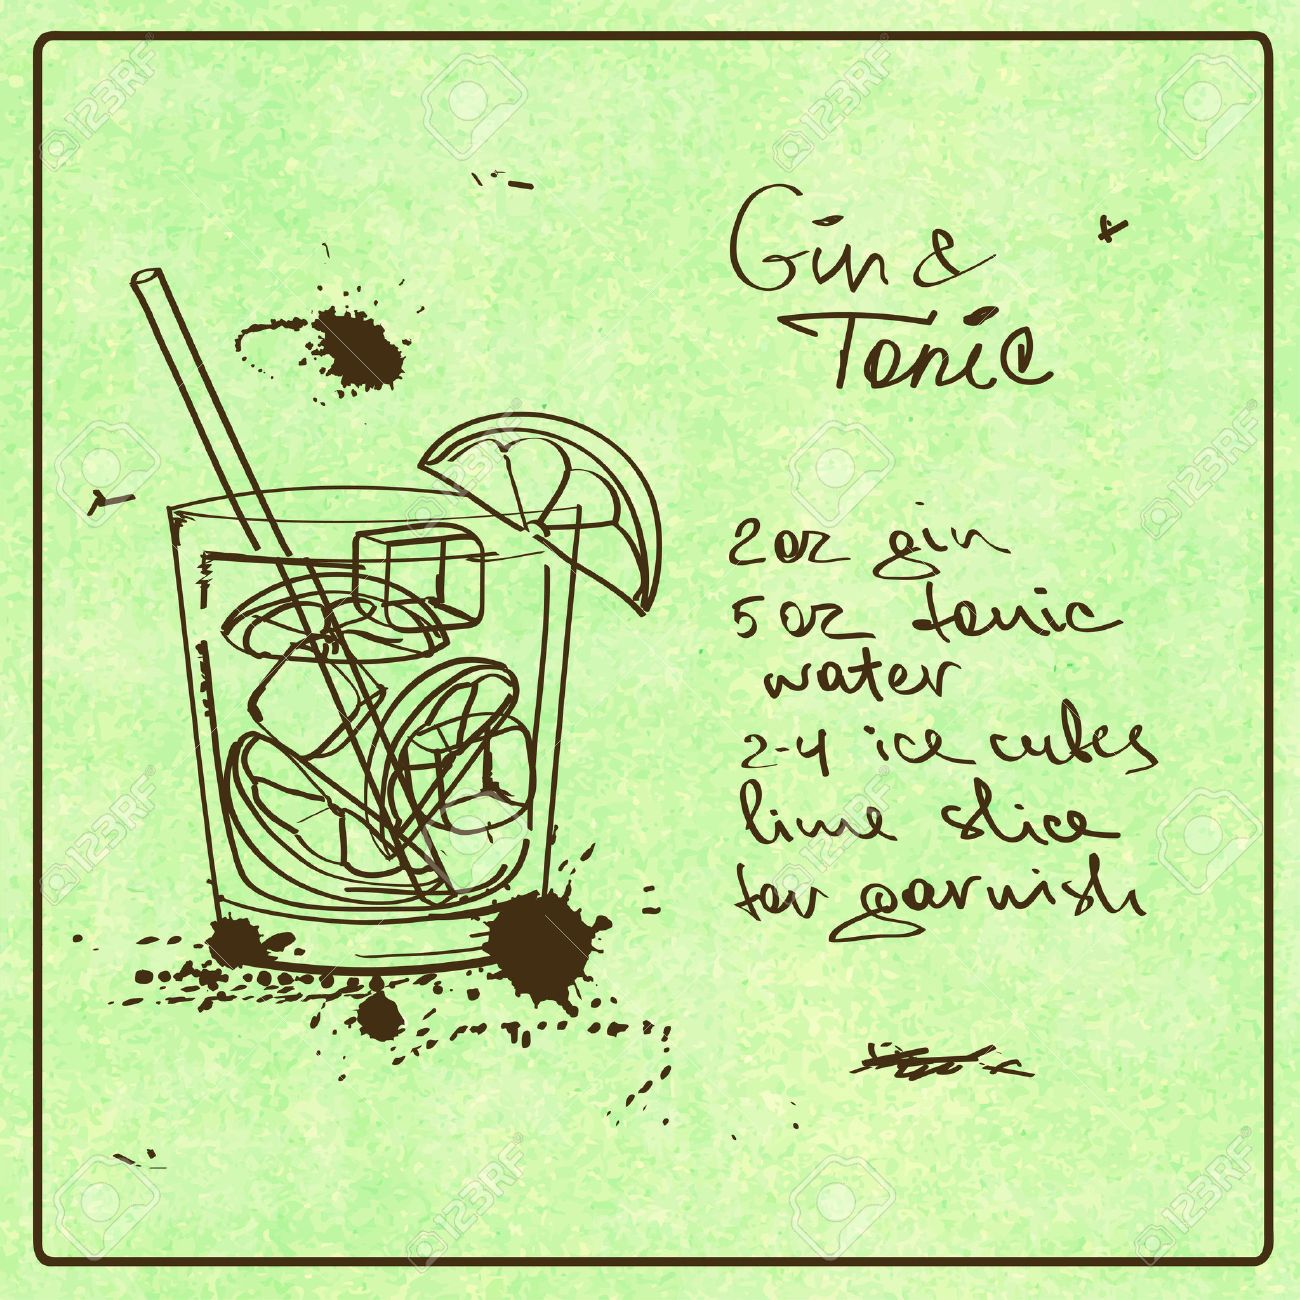 Gin &
Tonic
2 oz gin
5 oz tonic
water
2-4 ice cubes
lime slice
for garnish
123RF